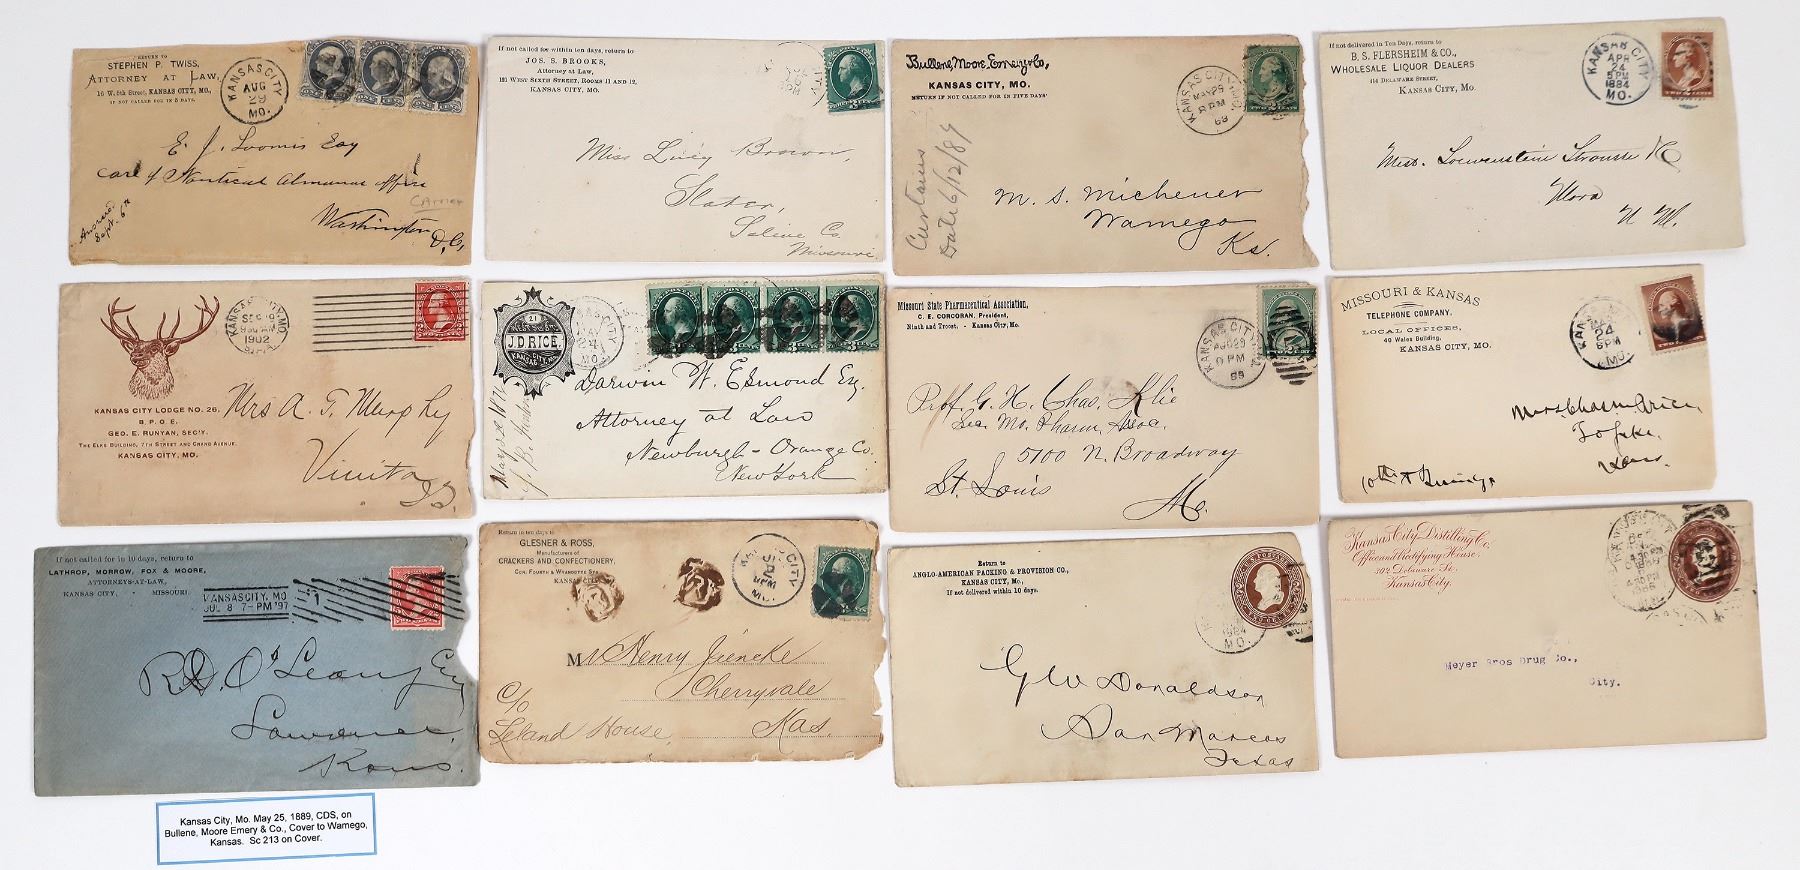 RETURN TO
STEPHEN P. TWISS,
ATTORNEY AT LAW,
16 W. 6th Street, KANSAS CITY, MO.,
IF NOT CALLED FOR IN 5 DAYS.
KANSAS CITY
AUG
29
MO.
E. J. Loomis Esq
care of Nautical Almanac office
Carrier
Washington
D.C.
Answered
Sept. 6th
If not called for within ten days, return to
JOS. S. BROOKS,
Attorney at Law,
121 WEST SIXTH STREET, ROOMS 11 AND 12,
KANSAS CITY, MO.
Miss Lucy Brown,
Slater,
Saline Co
Missouri
Bullene, Moore, Emery & Co,
KANSAS CITY, MO.
RETURN IF NOT CALLED FOR IN FIVE DAYS
KANSAS CITY, MO.
MAY 25
8 PM
M. S. Michener
Wamego
Ks.
Curtains
Date 6/12/89
If not delivered in Ten Days, return to
B. S. FLERSHEIM & CO.,
WHOLESALE LIQUOR DEALERS
114 DELAWARE STREET,
KANSAS CITY, MO.
KANSAS CITY
APR
24
5 PM
1884
MO.
Mess. Loewenstein Strousse & Co
Mora
N. M.
KANSAS CITY, MO.
930 AM
1902
KANSAS CITY LODGE NO. 26,
B. P. O. E.
GEO. E. RUNYAN, SEC'Y.
THE ELKS BUILDING, 7TH STREET AND GRAND AVENUE.
KANSAS CITY, MO.
Mrs A. T. Murphy
Vinita
I.T.
21
WEST 5th ST.
J.D RICE.
KANSAS CITY, MO.
KANSAS CITY
MAY
24
MO.
Darwin W. Esmond Esq.
Attorney at Law
Newburgh - Orange Co.
New York
Missouri State Pharmaceutical Association,
C. E. CORCORAN, President,
Ninth and Troost. - Kansas City, Mo.
KANSAS CITY, MO.
AUG 29
PM
89
Prof. G. H. Chas. Klie
Sec. Mo. Pharm. Assoc.
5100 N. Broadway
St. Louis
Mo.
MISSOURI & KANSAS
TELEPHONE COMPANY.
LOCAL OFFICES,
40 Wales Building,
KANSAS CITY, MO.
24
6PM
MO.
Topeka,
Kans.
If not called for in 10 days, return to
LATHROP, MORROW, FOX & MOORE,
ATTORNEYS-AT-LAW,
KANSAS CITY, - MISSOURI.
KANSAS CITY, MO
JUL 8 7-PM '97
1
R D O'Leary Esq
Lawrence,
Kans.
Return in ten days to
GLESNER & ROSS,
Manufacturers of
CRACKERS AND CONFECTIONERY,
COR. FOURTH & WYANDOTTE STS.
KANSAS CITY
Mr Henry Jiencke
Cherryvale
C/o
Leland House, Kas.
Return to
ANGLO-AMERICAN PACKING & PROVISION CO.,
KANSAS CITY, Mo.,
If not delivered within 10 days.
1884
MO.
G W Donaldson
San Marcos
Texas
Kansas City Distilling Co.
Office and Rectifying House.
302 Delaware St.
Kansas City.
4 30 PM
Meyer Bros Drug Co.,
City.
Kansas City, Mo. May 25, 1889, CDS, on
Bullene, Moore Emery & Co., Cover to Wamego,
Kansas. Sc 213 on Cover.